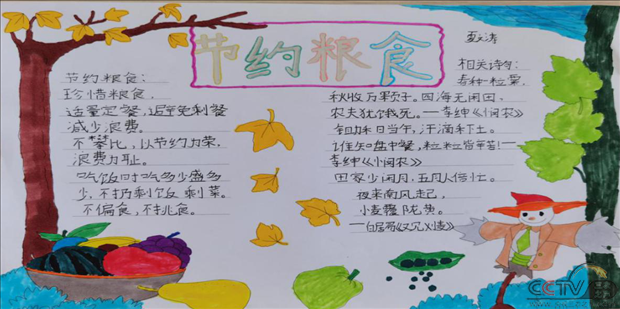 节约粮食
节约粮食：
珍惜粮食，
适量定餐，避免剩餐
减少浪费。
不攀比，以节约为荣，
浪费为耻。
吃饭时吃多少盛多
少，不扔剩饭剩菜。
不偏食，不挑食。
相关诗句：
春种一粒粟，
秋收万颗子。四海无闲田，
农夫犹饿死。——李绅《悯农》
锄禾日当午，汗滴禾下土。
谁知盘中餐，粒粒皆辛苦！——
李绅《悯农》
田家少闲月，五月人倍忙。
夜来南风起，
小麦覆陇黄。
——白居易《观刈麦》
CCTV